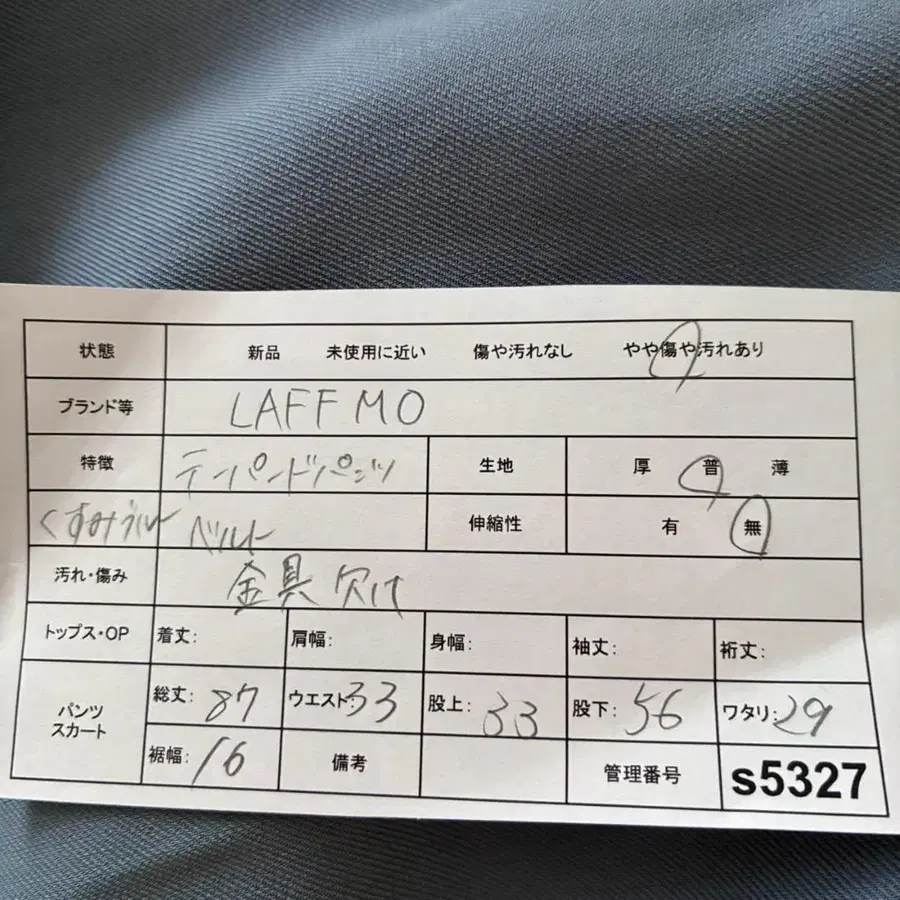 状態 新品 未使用に近い 傷や汚れなし やや傷や汚れあり
ブランド等 LAFF MO
特徴 テーパンドパンツ 生地 厚 普 薄
くすみブルー ベルト 伸縮性 有 無
汚れ・傷み 金具欠け
トップス・OP 着丈: 肩幅: 身幅: 袖丈: 裄丈:
パンツ スカート 総丈: 87 ウエスト: 33 股上: 33 股下: 56 ワタリ: 29
裾幅: 16 備考 管理番号 s5327